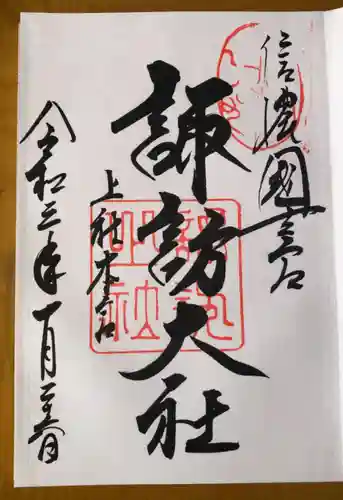 信濃國一宮
諏訪大社
上社本宮
令和三年一月二十五日